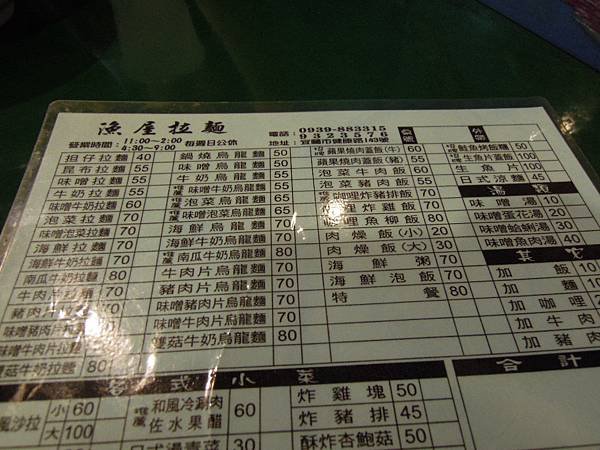 漁屋拉麵
電話：0939-883315
9323576
營業時間：11:00~2:00 每週日公休
4:30~9:00
地址：宜蘭市健康路
擔仔拉麵 40
昆布拉麵 55
味噌拉麵 55
牛奶拉麵 55
味噌牛奶拉麵 60
泡菜拉麵 70
味噌泡菜拉麵 70
海鮮拉麵 70
海鮮牛奶拉麵 70
南瓜牛奶拉麵 80
牛肉片拉麵 70
豬肉片拉麵 70
味噌豬肉片拉麵 70
味噌牛肉片拉麵
雙菇牛奶拉麵 80
鍋燒烏龍麵 50
味噌烏龍麵 50
牛奶烏龍麵 55
推薦 味噌牛奶烏龍麵 55
推薦 泡菜烏龍麵 65
推薦 味噌泡菜烏龍麵 65
海鮮烏龍麵 70
海鮮牛奶烏龍麵 70
推薦 南瓜牛奶烏龍麵 80
牛肉片烏龍麵 70
豬肉片烏龍麵 70
味噌豬肉片烏龍麵 70
味噌牛肉片烏龍麵 70
雙菇牛奶烏龍麵 80
推薦 蘋果燒肉蓋飯(牛) 55
蘋果燒肉蓋飯(豬) 55
泡菜牛肉飯 60
泡菜豬肉飯 55
推薦 咖哩炸豬排飯 70
咖哩炸雞飯 70
咖哩魚柳飯 70
肉燥飯(小) 20
肉燥飯(大) 30
海鮮粥 70
海鮮泡飯 70
特餐 80
內用
外帶
推薦 鮭魚烤飯糰 50
推薦 生魚片蓋飯 100
生魚片 100
日式涼麵 45
湯類
味噌湯 10
味噌蛋花湯 20
味噌蛤蜊湯 30
味噌魚肉湯 40
其它
加飯 10
加麵
加咖哩
加牛肉
加豬肉
合計
日式小菜
風沙拉 小 60
大 100
推薦 和風冷涮肉佐水果醋 60
日式燙青菜 30
炸雞塊 50
炸豬排 45
酥炸杏鮑菇 50